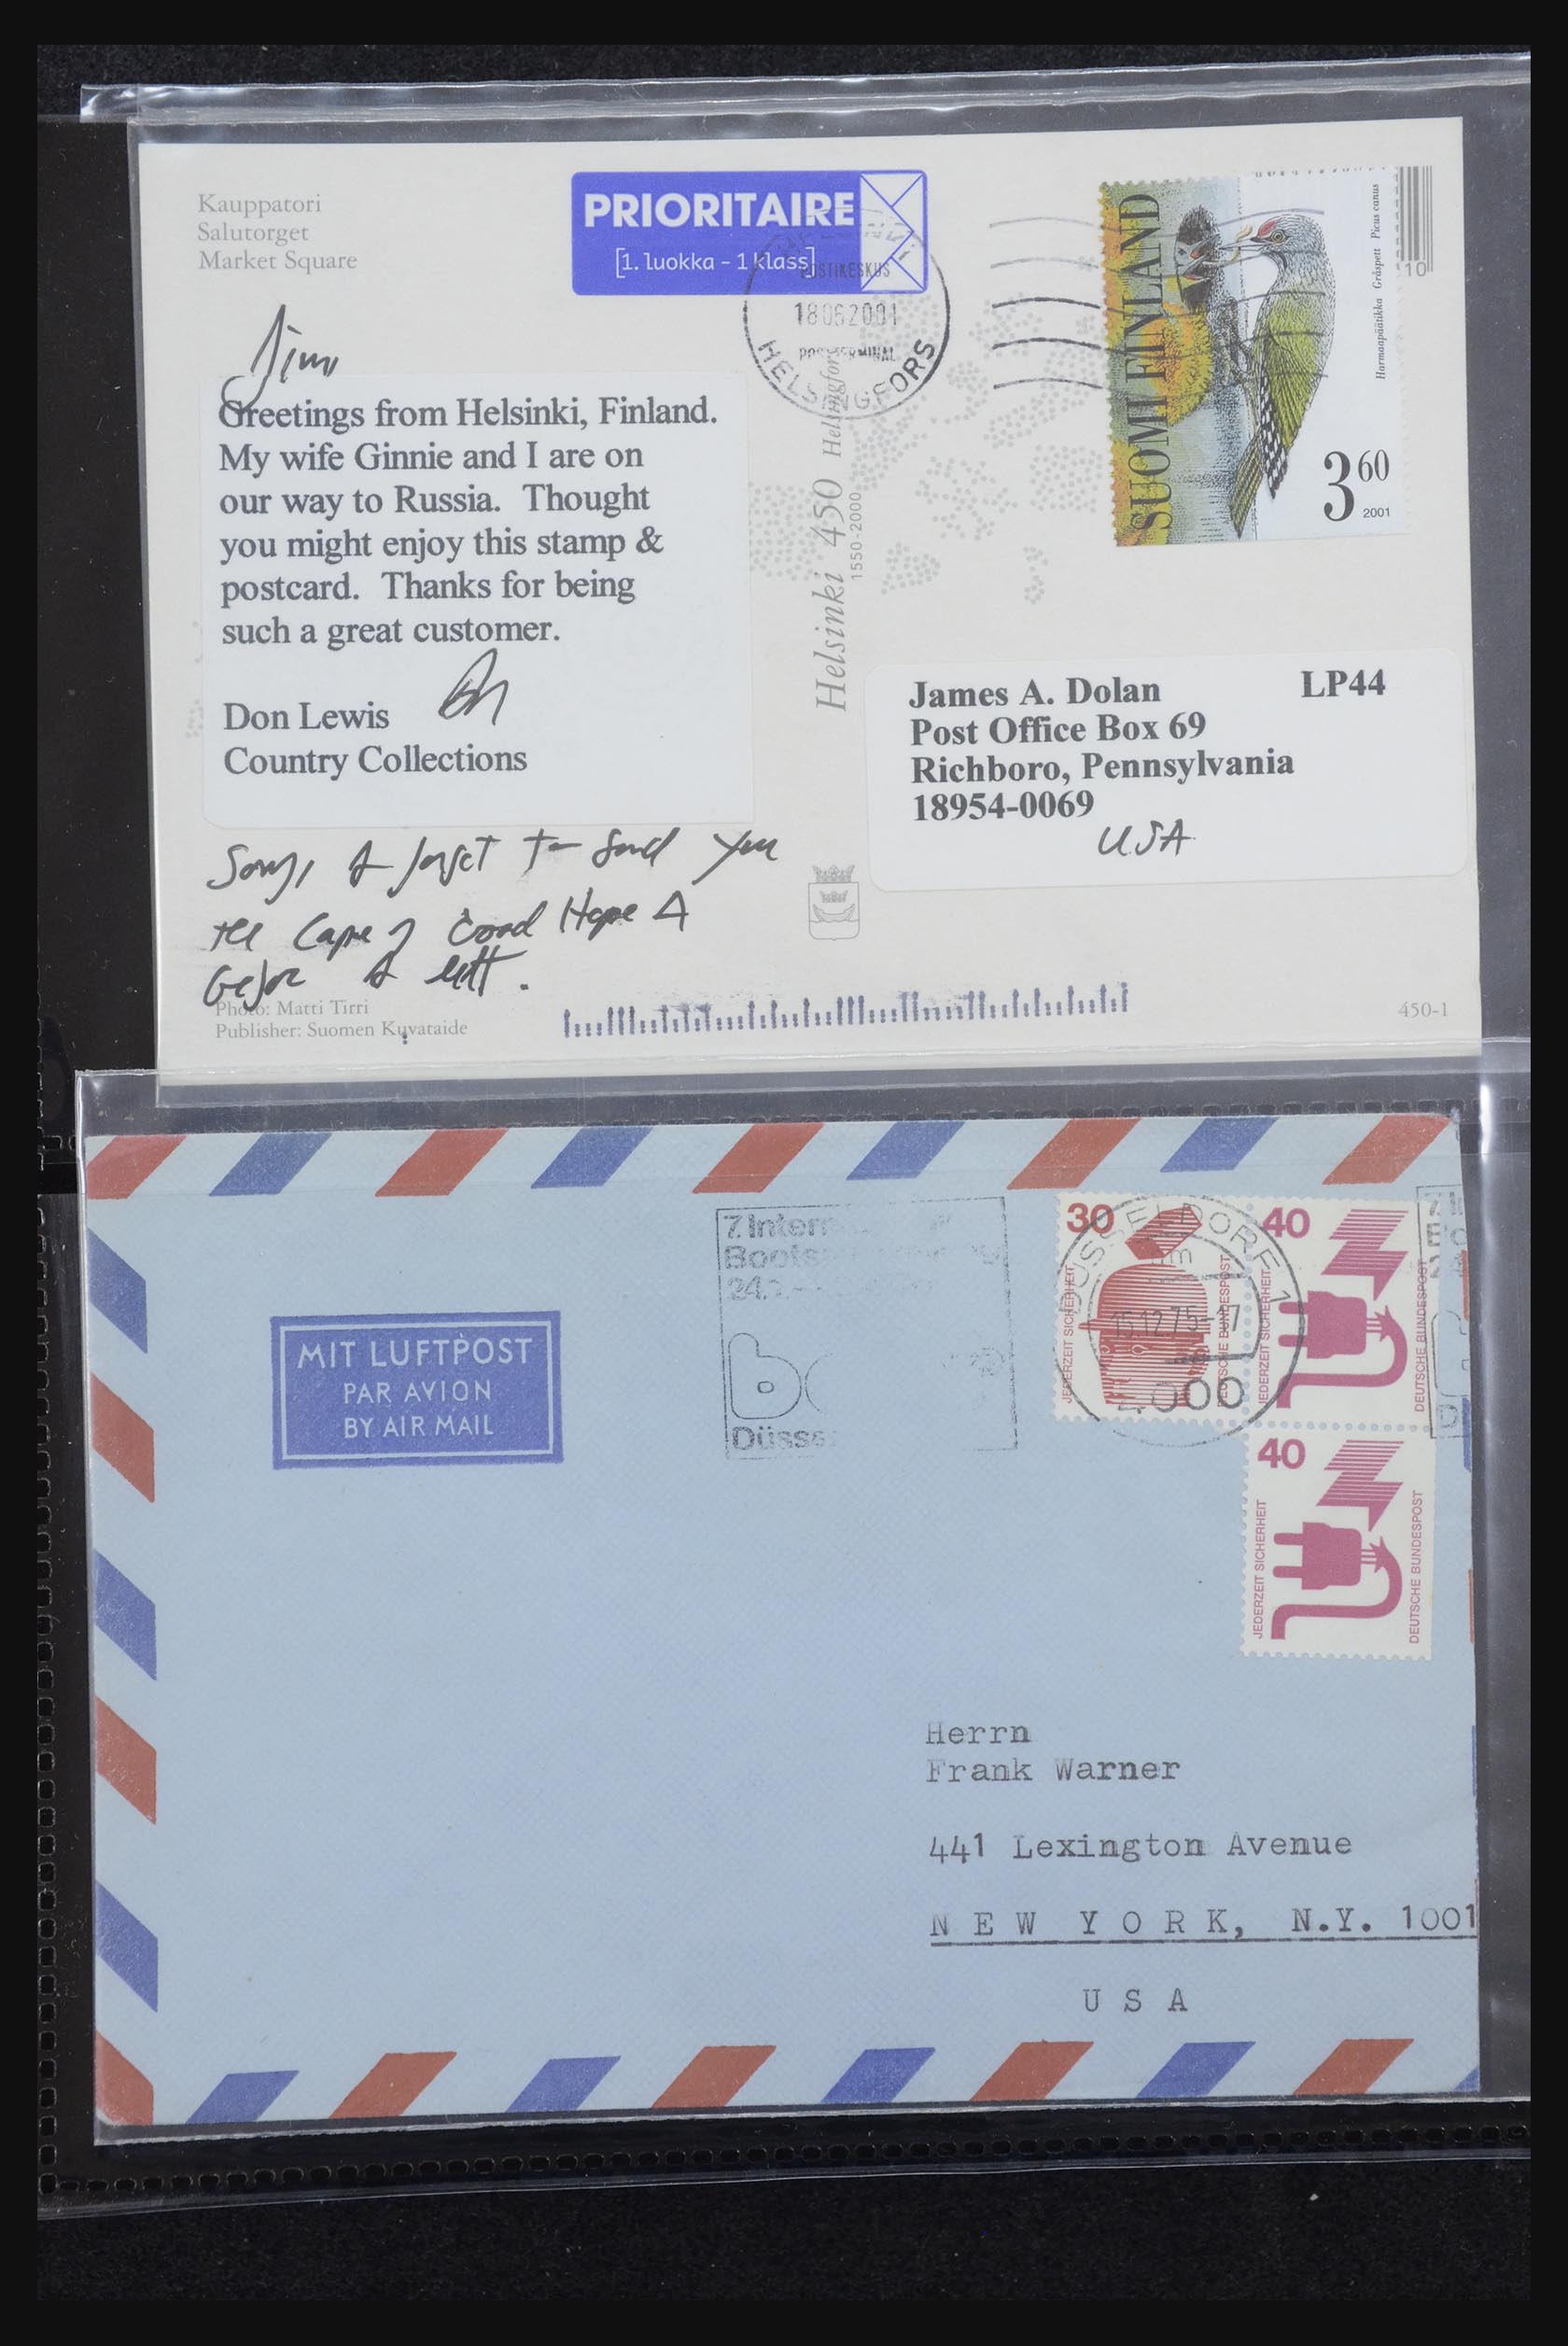 Kauppatori
Salutorget
Market Square
PRIORITAIRE
[1. luokka - 1 klass]
POSTIKESKUS
18062001
POSTTERMINAL
HELSINGFORS
SUOMI FINLAND
Harmaapäätikka Gråspett Picus canus
10
3 60
2001
Jim
Greetings from Helsinki, Finland.
My wife Ginnie and I are on
our way to Russia. Thought
you might enjoy this stamp &
postcard. Thanks for being
such a great customer.
Don Lewis
Country Collections
Helsinki 450 Helsingfors
1550-2000
James A. Dolan LP44
Post Office Box 69
Richboro, Pennsylvania
18954-0069
USA
Sorry, I forget to send you
the Cape of Good Hope Δ
before I left.
Photo: Matti Tirri
Publisher: Suomen Kuvataide
450-1
MIT LUFTPOST
PAR AVION
BY AIR MAIL
7. Intern
Boots
24.
bo
Düsse
30
JEDERZEIT SICHERHEIT
DEUTSCHE BUNDESPOST
DÜSSELDORF 1
15.12.75-17
4000
40
JEDERZEIT SICHERHEIT
DEUTSCHE BUNDESPOST
40
JEDERZEIT SICHERHEIT
DEUTSCHE BUNDESPOST
Herrn
Frank Warner
441 Lexington Avenue
NEW YORK, N.Y. 1001
USA